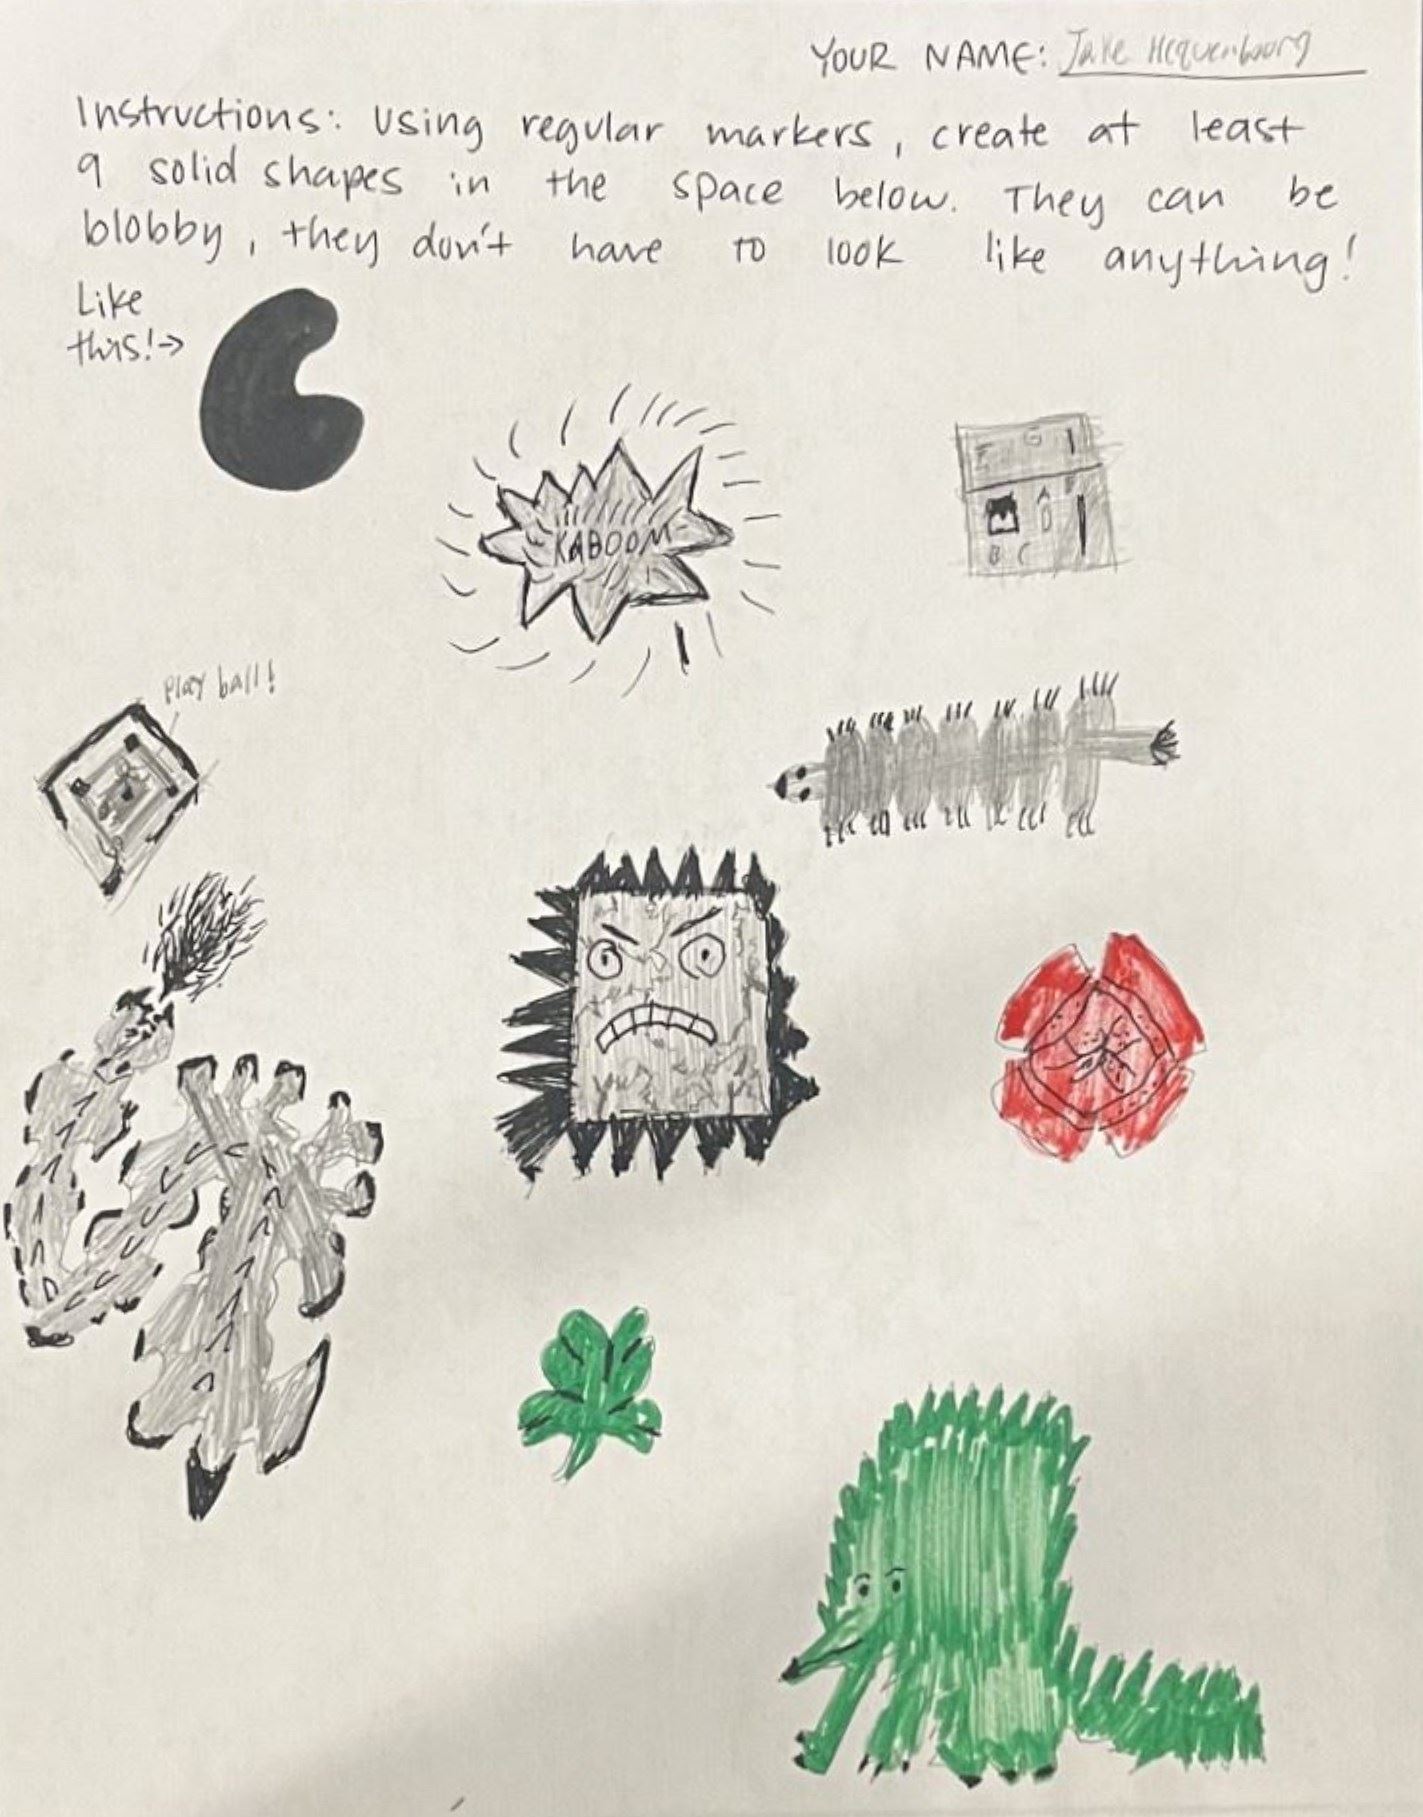 YOUR NAME: Jake
Instructions: Using regular markers, create at least
9 solid shapes in the space below. They can be
blobby, they don't have to look like anything!
Like
this!→
KABOOM
play ball!